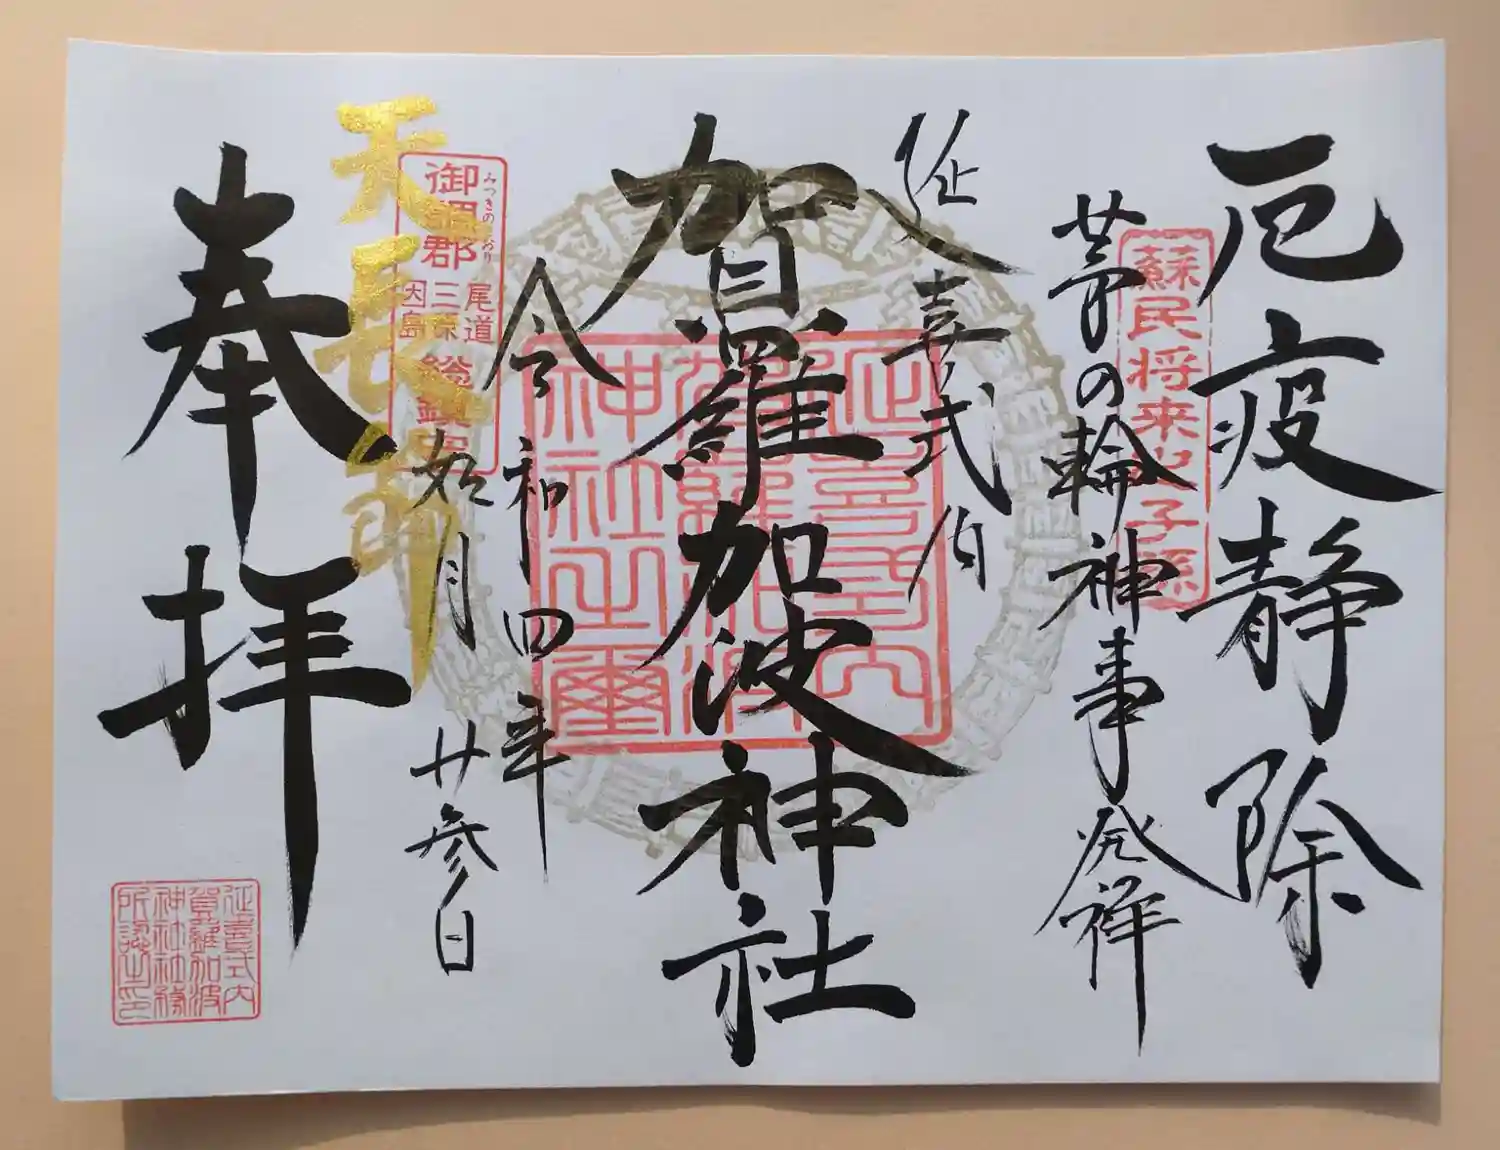 厄疫静除
蘇民将来之子孫
茅の輪神事発祥
延喜式内
賀羅加波神社
延喜式内
賀羅加波
神社之璽
令和四年
如月廿参日
みつきのこおり
御調郡
尾道
三原
因島
総鎮守
天長節
奉拝
延喜式内
賀羅加波
神社社務
所認之印